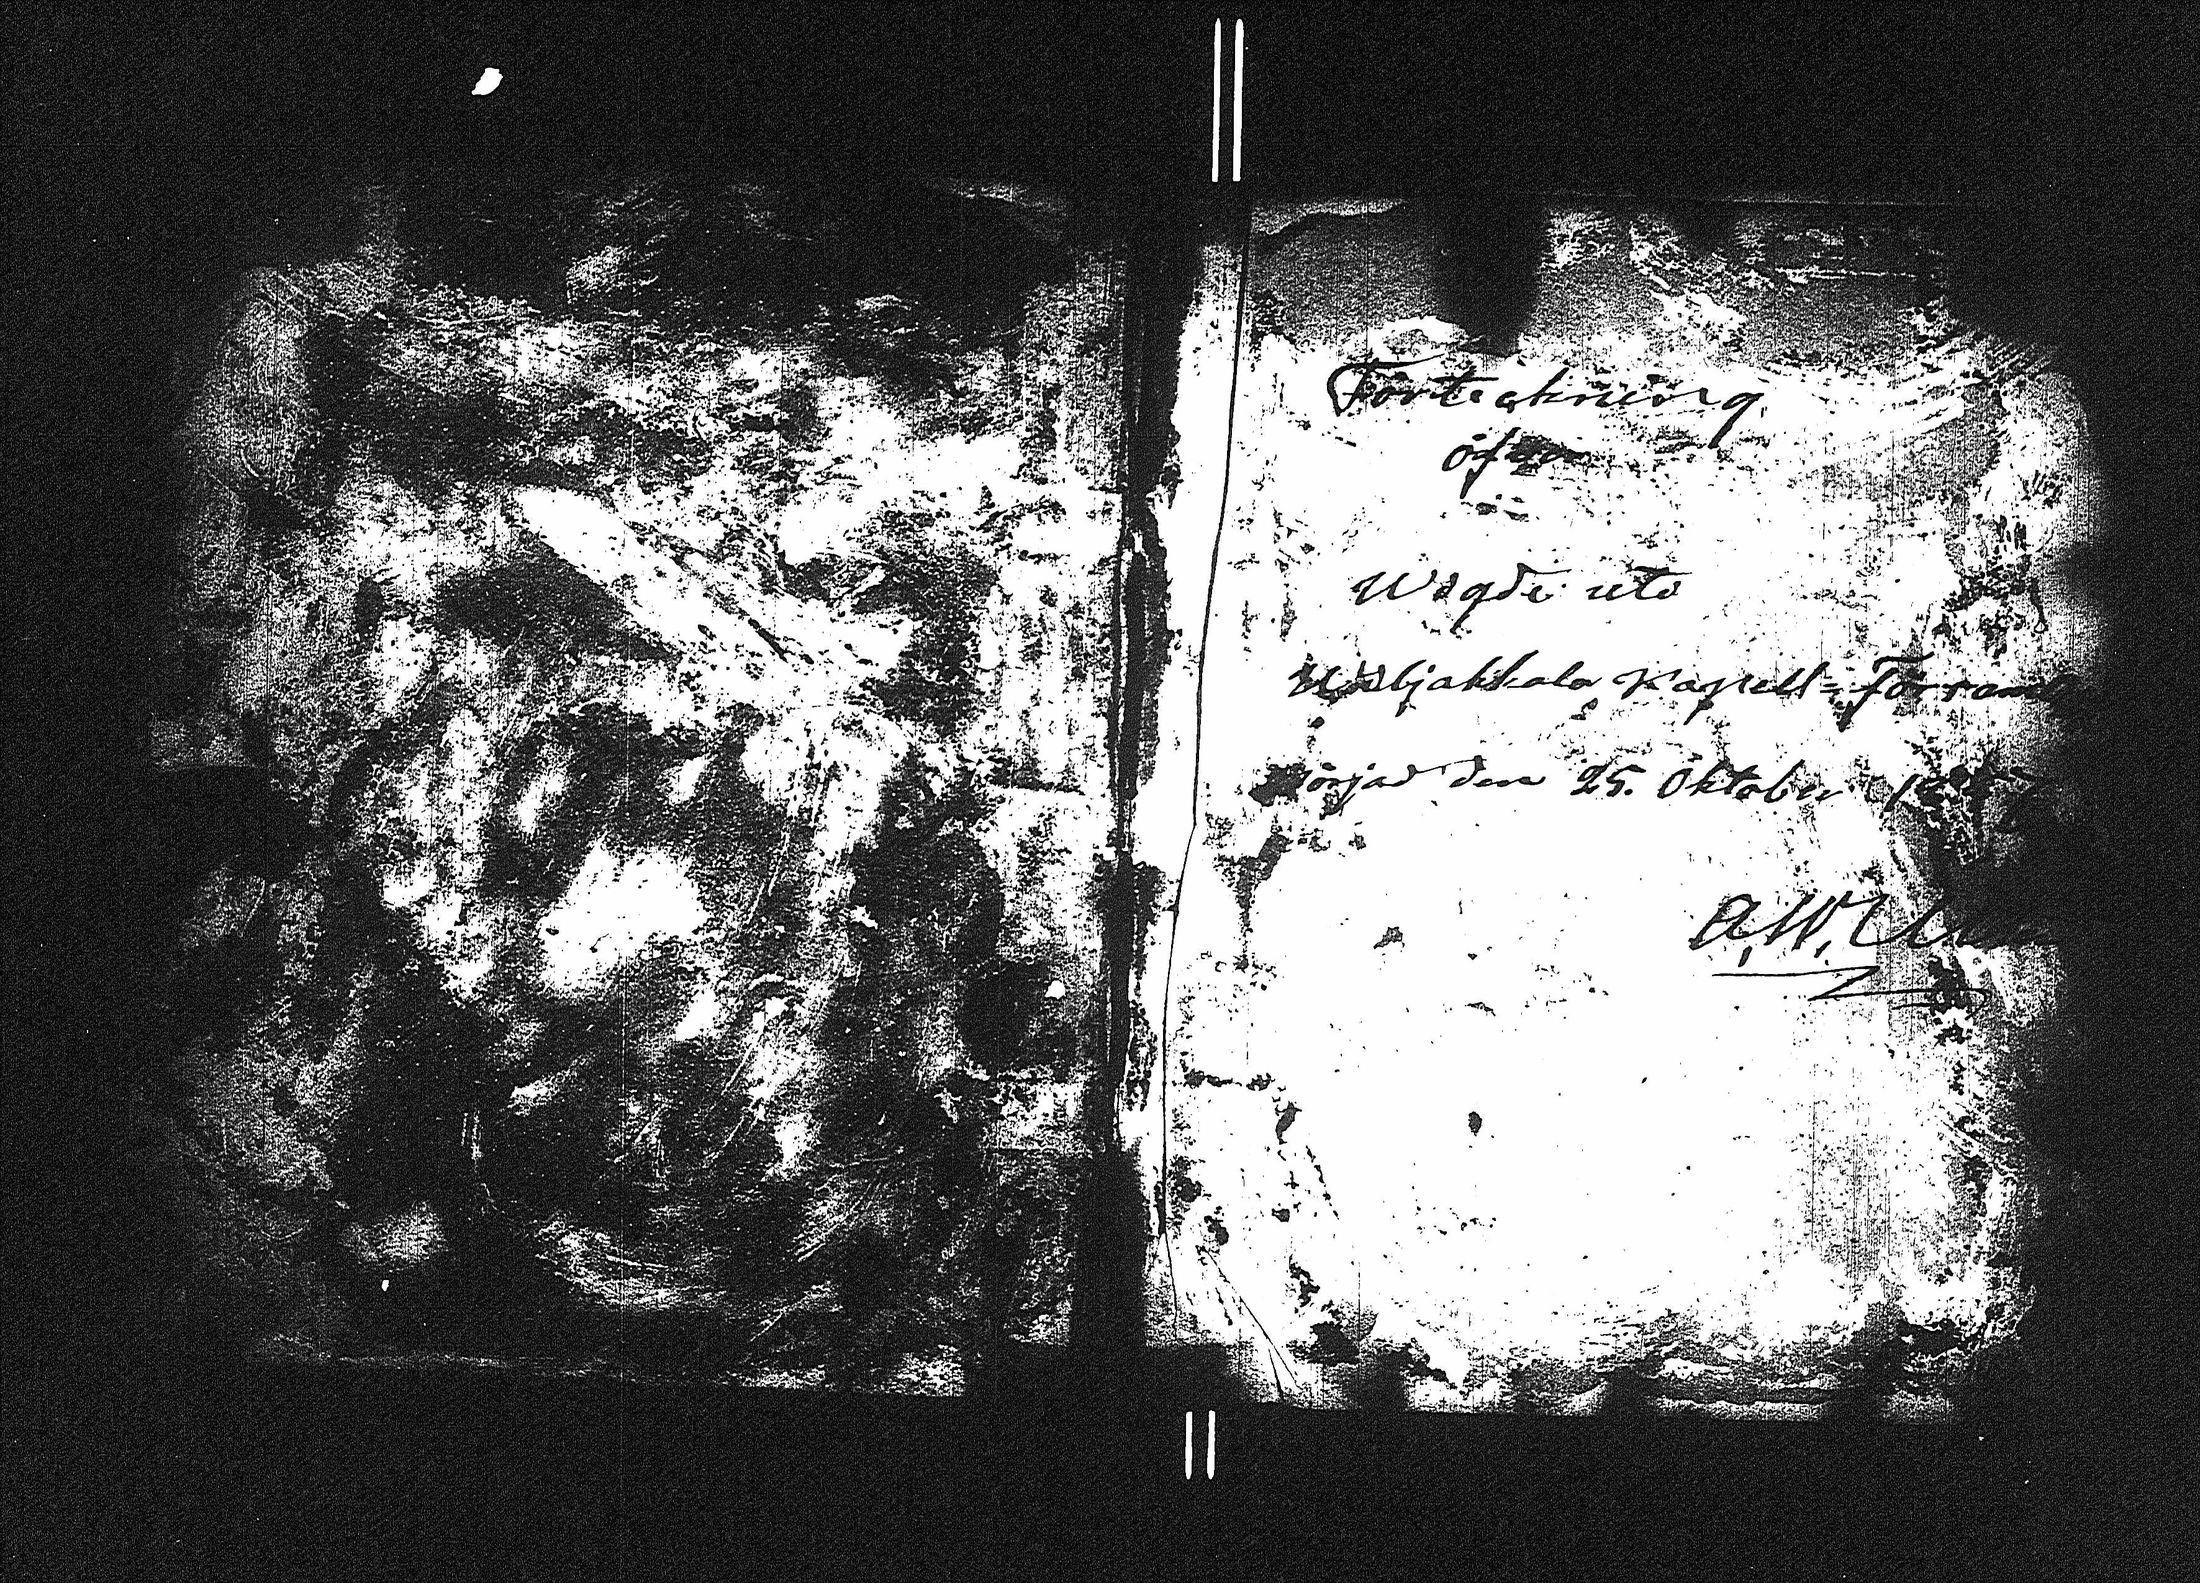 Förteckning
öfver
Wigde uti
Wiljakkala Kapell-Församl
Börjad den 25. Oktober 18
A. W. U